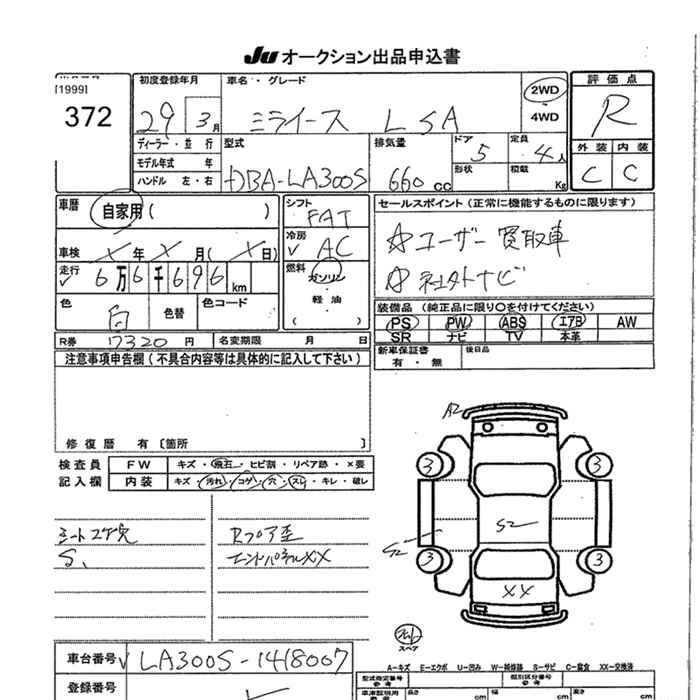 Ju オークション出品申込書
[1999]
372
初度登録年月
29 3月
車名・グレード
ミライース LSA
2WD
4WD
評価点
R
ディーラー・並行
モデル年式 年
ハンドル 左・右
型式
DBA-LA300S
排気量
660 cc
ドア
5
形状
定員
4人
積載
Kg
外装 内装
C C
車歴
自家用( )
車検 X年X月(X日)
走行
6万6千696km
色
白
色替
色コード
シフト
FAT
冷房
AC
燃料
ガソリン
・
軽油
( )
セールスポイント(正常に機能するものに限ります)
☆ユーザー買取車
☆社外ナビ
装備品(純正品に限り〇を付けてください)
PS PW ABS エアB AW
SR ナビ TV 本革
新車保証書
有・無
後日品
R券 17320円
名変期限 月 日
注意事項申告欄(不具合内容等は具体的に記入して下さい)
修復歴 有〔箇所 〕
検査員
記入欄
FW キズ・飛石・ヒビ割・リペア跡・×要
内装 キズ・汚れ・コゲ・穴・スレ・キレ・破レ
シートコゲ穴
S、
Rフロア歪
エンドパネルXX
A2
3
3
S2
S2
3
3
XX
スペア
A-キズ E-エクボ U-凹み W-補修跡 S-サビ C-腐食 XX-交換済
車台番号 LA300S-1418007
登録番号
型式指定番号
参考
類別区分番号
参考
車庫証明用
長さ
cm
幅
cm
高さ
cm